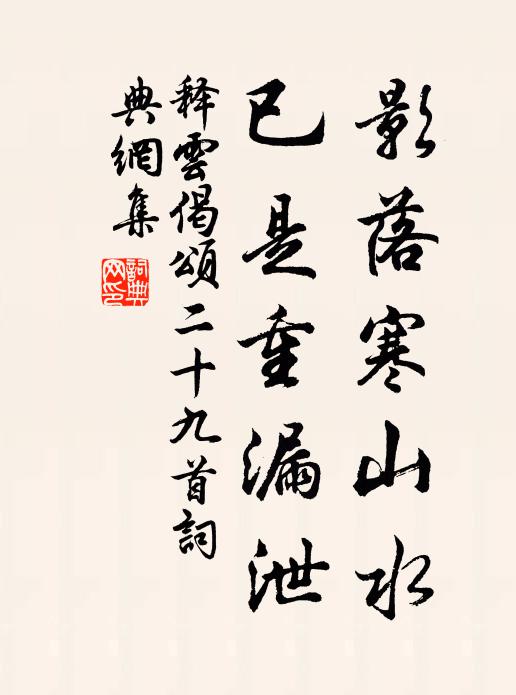 影落寒山水
已是重漏泄
释雲偈頌二十九首詞
典網集
詞典網印